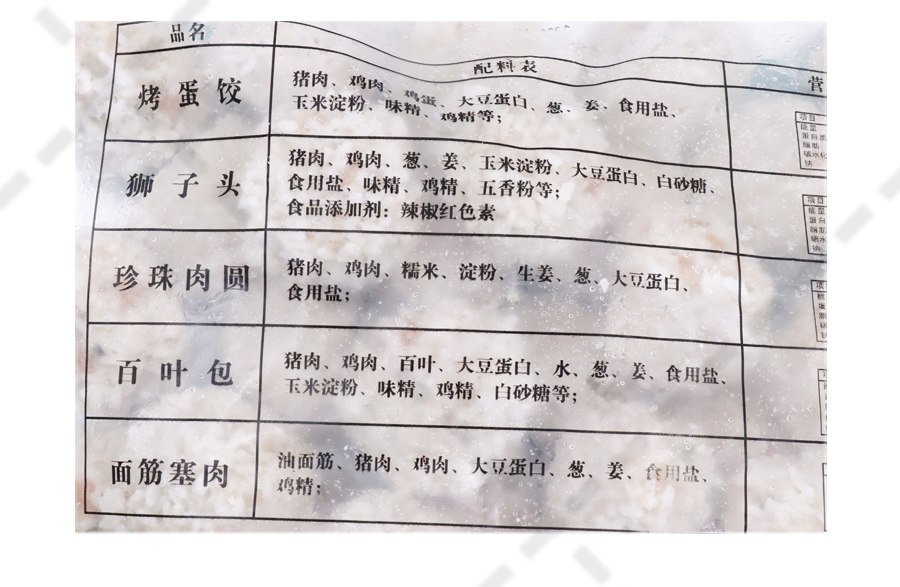 品名
配料表
营
烤蛋饺
猪肉、鸡肉、鸡蛋、大豆蛋白、葱、姜、食用盐、
玉米淀粉、味精、鸡精等；
项目
能量
蛋白质
脂肪
碳水化
钠
狮子头
猪肉、鸡肉、葱、姜、玉米淀粉、大豆蛋白、白砂糖、
食用盐、味精、鸡精、五香粉等；
食品添加剂：辣椒红色素
项目
能量
蛋白
脂肪
碳水
钠
珍珠肉圆
猪肉、鸡肉、糯米、淀粉、生姜、葱、大豆蛋白、
食用盐；
百叶包
猪肉、鸡肉、百叶、大豆蛋白、水、葱、姜、食用盐、
玉米淀粉、味精、鸡精、白砂糖等；
面筋塞肉
油面筋、猪肉、鸡肉、大豆蛋白、葱、姜、食用盐、
鸡精；